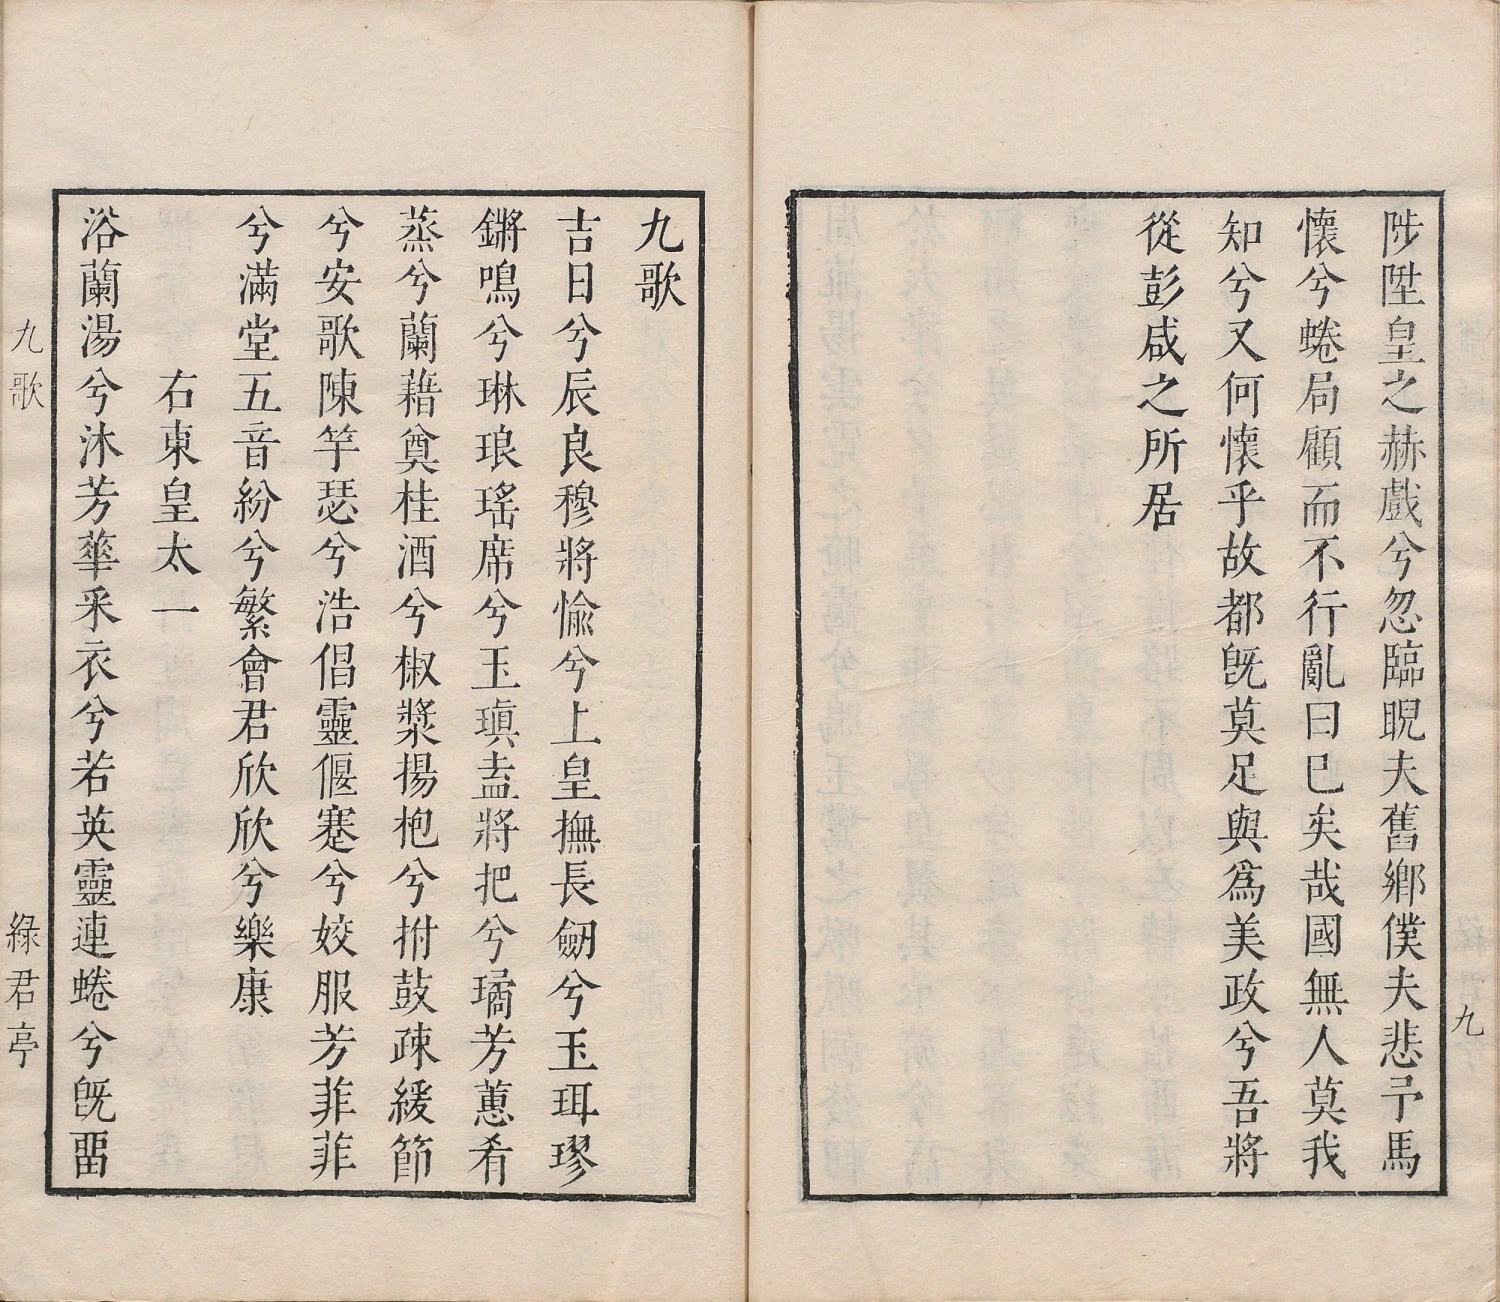 陟陞皇之赫戲兮忽臨睨夫舊鄉僕夫悲予馬
懷兮蜷局顧而不行亂曰已矣哉國無人莫我
知兮又何懷乎故都旣莫足與爲美政兮吾將
從彭咸之所居
九
九歌
吉日兮辰良穆將愉兮上皇撫長劒兮玉珥璆
鏘鳴兮琳琅瑤席兮玉瑱盍將把兮璚芳蕙肴
蒸兮蘭藉奠桂酒兮椒漿揚枹兮拊鼓疎緩節
兮安歌陳竽瑟兮浩倡靈偃蹇兮姣服芳菲菲
兮滿堂五音紛兮繁會君欣欣兮樂康
右東皇太一
浴蘭湯兮沐芳華采衣兮若英靈連蜷兮旣畱
九歌
綠君亭